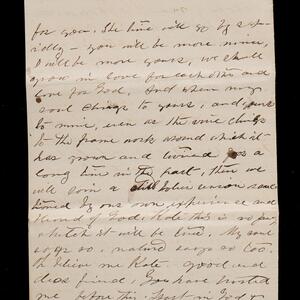 for you. The time will go by
you will be more mine,
I will be more yours, we shall
grow in love for each other and
love for God. And when my
soul clings to yours, and yours
to mine, even as the vine clings
to the frame work around which it
has grown and twined for a
long time in the past, then we
will
by our own experience and
of God. Kate this is no
it will be true. My soul
says so, nature says so too.
believe me Kate, good and
dear friend, you have trusted
me before this, trust in God